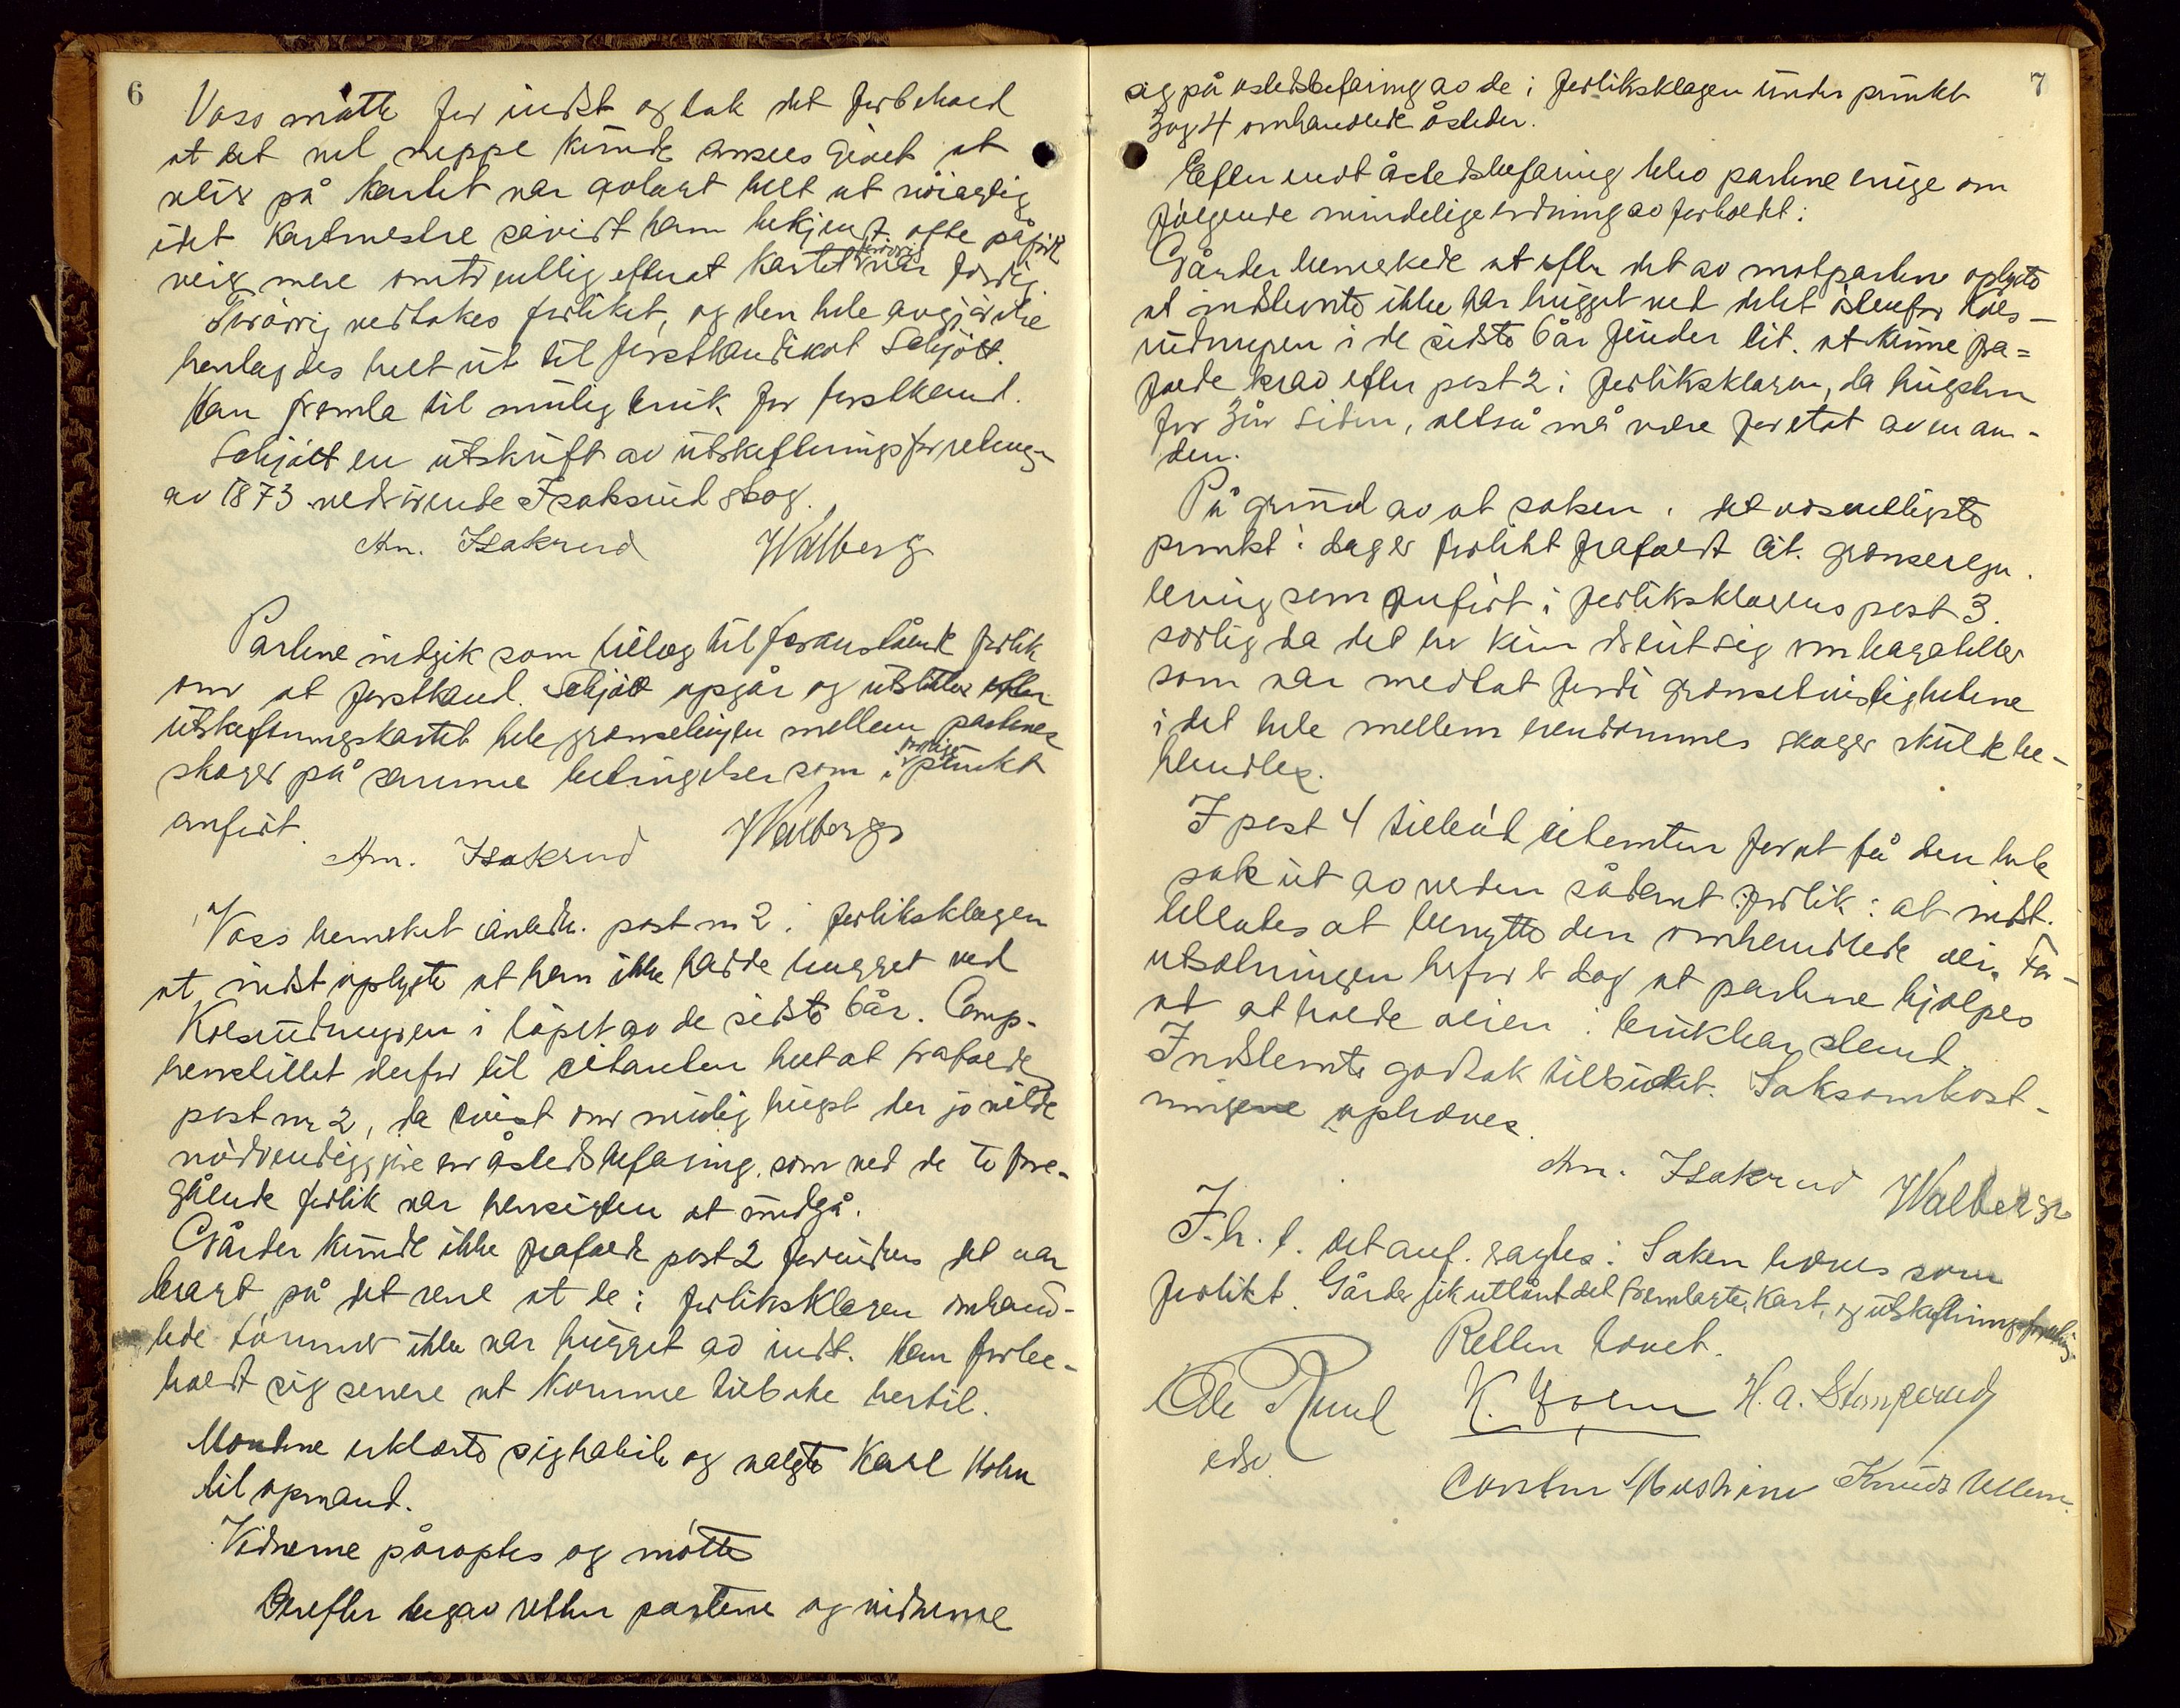 6
Voss møtte for indst og tok det forbehold
at det vel neppe kunde ansees givet at
veier på kartet var avlagt helt ut nøiagtig
idet kartmestre såvidt ham bekjendt ofte påførte
veier mere omtrentlig efterat kartet forøvrig var færdig.
Forøvrig vedtokes forliket, og den hele avgjørelse
henlagdes helt ut til forstkandidat Schjøtt.
Han fremla til mulig bruk for forstkand.
Schjøtt en utskrift av utskiftningsforretning
av 1873 vedrørende Isaksrud skog.
An. Isakrud Walberg
Partene indgik som tillæg til foranstående forlik
om at forstkand. Schjøtt opgår og utstikker efter
utskiftningskartet hele grænselinjen mellem partenes
skoger på samme betingelser som i forrige punkt
anført.
An. Isakrud Walberg
Voss bemerket i anledn. post nr 2 i forliksklagen
at indst oplyste at han ikke hadde hugget ved
i løpet av de sidste 6 år.
henstillet derfor til citanten helt at frafalde
post nr 2, da tvist om mulig hugst der jo vilde
nødvendiggjøre en åstedsbefaring, som ved de to fore-
gående forlik var hensigten at undgå.
Gårder kunde ikke frafalde post 2 forinden det var
bragt på det rene at de i forliksklagen omhand-
lede tømmer ikke var hugget av indst. Han forbe-
holdt sig senere at komme tilbake hertil.
Mændene erklærte sig habile og valgte Karl Holm
til opmand.
Vidnerne påroptes og møtte
Derefter begav retten partene og vidnerne
7
sig på åstedsbefaring av de i forliksklagen under punkt
3 og 4 omhandlede åsteder.
Efter endt åstedsbefaring blev partene enige om
følgende mindelige ordning av forholdet:
Gårder bemerkede at efter det av motparten oplyste
at indstevnte ikke har hugget ved delet østenfor
i de sidste 6 år finder cit. at kunne fra=
falde krav efter post 2 i forliksklagen, da hugsten
for 3 år siden, altså må være foretat av en an-
den.
På grund av at saken i det væsentligste
punkt i dag er forlikt frafaldt cit. grænseregu-
lering som anført i forliksklagens post 3
særlig da det her kun dreiet sig om bagateller
som var medtat fordi grænsetvistighetene
i det hele mellem eiendommenes skoger skulde be-
handles.
I post 4 tilbød citanten for at få den hele
sak ut av verden sådant forlik: at indst.
tillates at benytte den omhandlede vei. For-
utsætningen herfor er dog at partene hjælpes
at at holde veien i brukbar stand.
Indstevnte godtok tilbudet. Saksomkost-
ningene ophæves.
An. Isakrud Walberg
I. h. t. det anf. sagdes: Saken hæves som
forlikt. Gårder fik utlånt det fremlagte kart, og utskiftningsforretning
Retten hævet.
Ole Ruud K. Holm H. A.
edsv.
Knud